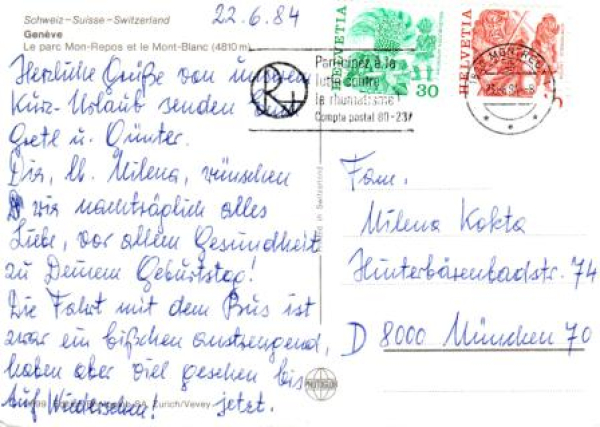 Schweiz–Suisse–Switzerland
Genève
Le parc Mon-Repos et le Mont-Blanc (4810 m)
22.6.84
Herzliche Grüße von unserem
Kurz-Urlaub senden Euch
Gretl u. Günter.
Dir, lb. Milena, wünschen
wir nachträglich alles
Liebe, vor allem Gesundheit
zu Deinem Geburtstag!
Die Fahrt mit dem Bus ist
zwar ein bißchen anstrengend,
haben aber viel gesehen bis
jetzt.
Auf Wiedersehen!
SA, Zurich/Vevey
Printed in Switzerland
PHOTOGLOB
R+
Participez à la
lutte contre
le rhumatisme!
Compte postal 80-237
HELVETIA
30
HELVETIA
Fam.
Milena Kokta
Hinterbärenbadstr. 74
D 8000 München 70